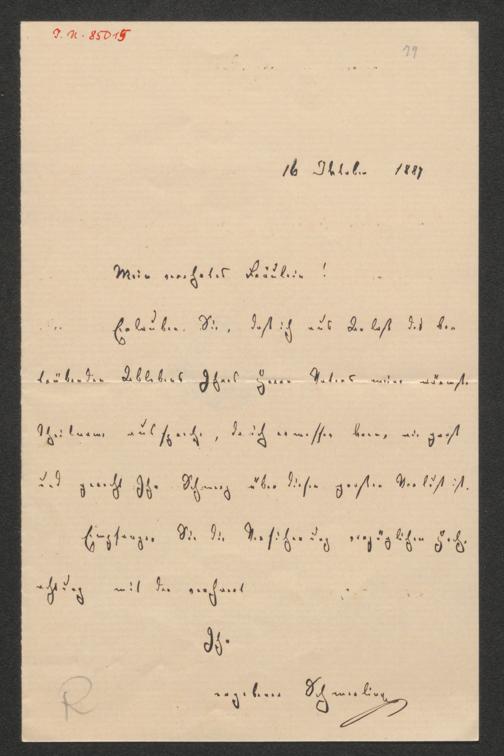 I. N. 85015
79
16 Oktober 1887
Mein verehrtes Fräulein!
Erlauben Sie, daß ich aus Anlaß des be-
trübenden Ablebens Ihres Herrn Vaters meine wärmste
Theilname ausspreche, da ich ermessen kann, wie groß
und gerecht Ihr Schmerz über diesen großen Verlust ist.
Empfangen Sie die Versicherung vorzüglicher Hoch-
achtung mit der verharrt
Ihr
ergebener Schmerling
R